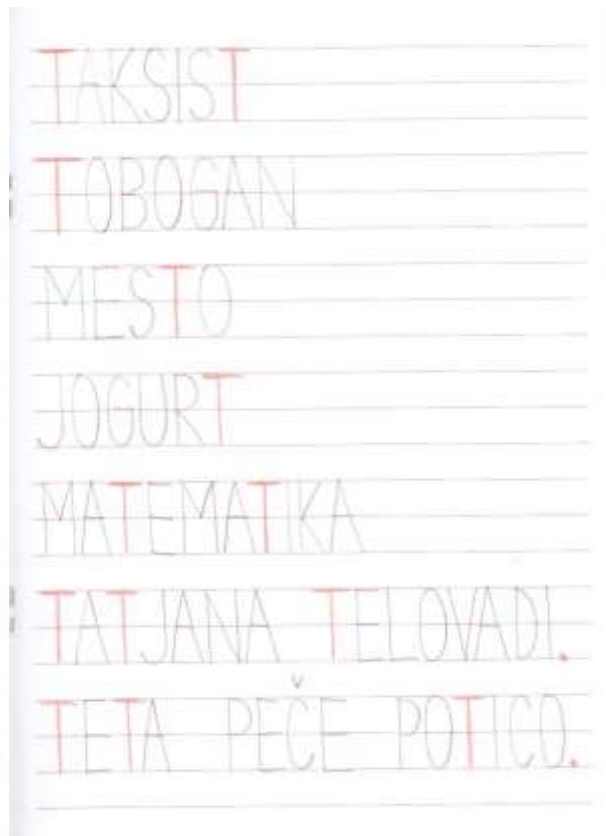 TAKSIST
TOBOGAN
MESTO
JOGURT
MATEMATIKA
TATJANA TELOVADI.
TETA PEČE POTICO.